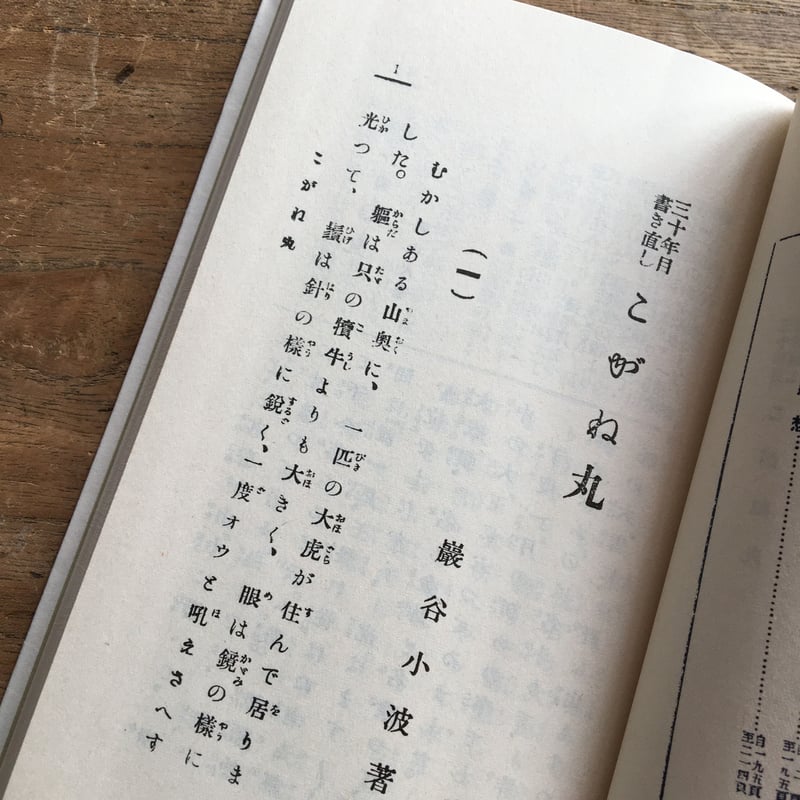 自一九五頁
至二二四頁
三十年月
書き直し
こがね丸
巖谷小波著
(一)
むかしある山奧に、一匹の大虎が住んで居りま
した。軀は只の犢牛よりも大きく、眼は鏡の樣に
光つて、鬚は針の樣に鋭く、一度オウと吼えさへす
こがね丸
1